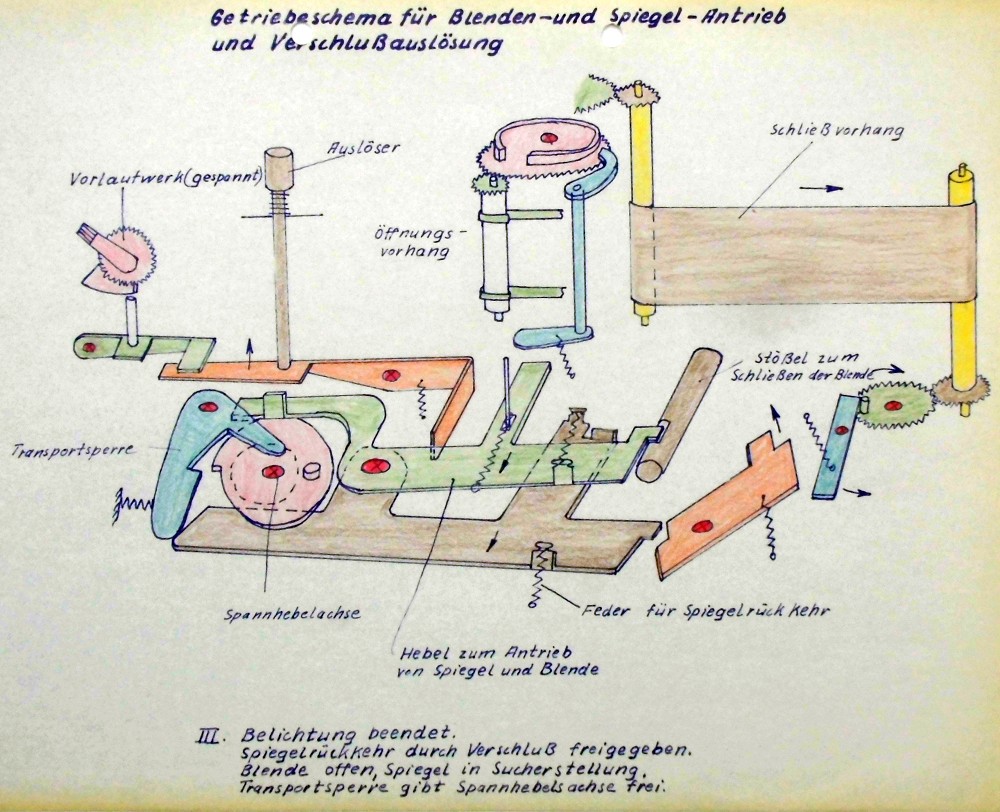 Getriebeschema für Blenden-und Spiegel-Antrieb
und Verschlußauslösung
Schließvorhang
Auslöser
Vorlaufwerk(gespannt)
Öffnungs-
vorhang
Stößel zum
Schließen der Blende
Transportsperre
Spannhebelachse
Feder für Spiegelrückkehr
Hebel zum Antrieb
von Spiegel und Blende
III. Belichtung beendet.
Spiegelrückkehr durch Verschluß freigegeben.
Blende offen, Spiegel in Sucherstellung.
Transportsperre gibt Spannhebelsachse frei.